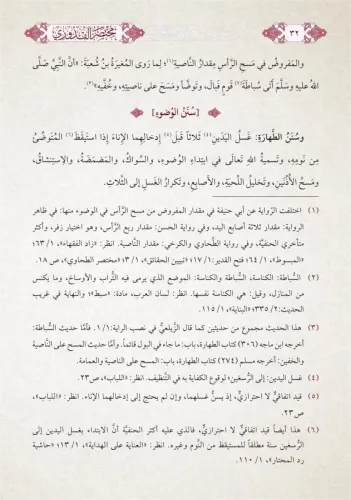 ٣٢
مختصر القدوري
والمفروضُ في مَسحِ الرَّأسِ مِقدارُ النَّاصيةِ(١)؛ لِما رَوى المُغيرَةُ بنُ شُعبَةَ: «أنَّ النَّبيَّ صَلَّى
اللهُ عليهِ وسَلَّمَ أتى سُباطَةَ(٢) قَومٍ فَبالَ، وتَوضَّأَ ومَسَحَ على ناصِيَتِهِ، وخُفَّيهِ»(٣).
[سُنَنُ الوُضوءِ]
وسُنَنُ الطَّهارَةِ: غَسلُ اليَدَينِ(٤) ثَلاثاً قَبلَ(٥) إدخالِهما الإناءَ إذا استَيقَظَ(٦) المُتَوضِّئُ
مِن نَومِهِ، وتَسميةُ اللهِ تَعالَى في ابتِداءِ الوُضوءِ، والسِّواكُ، والمَضمَضَةُ، والاستِنشاقُ،
ومَسحُ الأُذُنَينِ، وتَخليلُ اللِّحيَةِ، والأصابِعِ، وتَكرارُ الغَسلِ إلى الثَّلاثِ.
(١) اختلفت الرِّواية عن أبي حنيفة في مقدار المفروض من مسح الرَّأس في الوضوء منها: في ظاهر
الرواية: مقدار ثلاثة أصابع اليد، وفي رواية الحسن: مقدار ربع الرَّأس، وهو اختيار زفر، وأكثر
متأخري الحنفيَّة، وفي رواية الطَّحاوي والكرخي: مقدار النَّاصية. انظر: «زاد الفقهاء»، ١/ ٦٣؛
«المبسوط»، ١/ ٦٤؛ فتح القدير: ١/ ١٧؛ «تبيين الحقائق»، ١/ ٣؛ «مختصر الطحاوي»، ص ١٨.
(٢) السُّباطة: الكناسة، السُّباطة والكناسة: الموضع الذي يرمى فيه التُّراب والأوساخ، وما يكنس
من المنازل، وقيل: هي الكناسة نفسها. انظر: لسان العرب، مادة: «سبط»؛ والنهاية في غريب
الحديث: ٢/ ٣٣٥؛ «البناية»، ١/ ١١٥.
(٣) هذا الحديث مجموع من حديثين كما قال الزَّيلعيُّ في نصب الراية: ١/ ١. فأمَّا حديث السُّباطة:
أخرجه ابن ماجه (٣٠٦) كتاب الطهارة، باب: ما جاء في البول قائماً. وأمَّا حديث المسح على النَّاصية
والخفين: أخرجه مسلم (٢٧٤) كتاب الطهارة، باب: المسح على الناصية والعمامة.
(٤) غسل اليدين: إلى الرُّسغين؛ لوقوع الكفاية به في التَّنظيف. انظر: «اللباب»، ص٢٣.
(٥) قيد اتفاقيٌّ لا احترازيٌّ، إذ يسنُّ غسلهما، وإن لم يحتج إلى إدخالهما الإناء. انظر: «اللباب»،
ص٢٣.
(٦) هذا أيضاً قيد اتفاقيٌّ لا احترازيٌّ، فالذي عليه أكثر الحنفيَّة أنَّ الابتداء بغسل اليدين إلى
الرُّسغين سنة مطلقاً للمستيقظ من النَّوم وغيره. انظر: «العناية على الهداية»، ١/ ١٣؛ «حاشية
رد المحتار»، ١/ ١١٠.